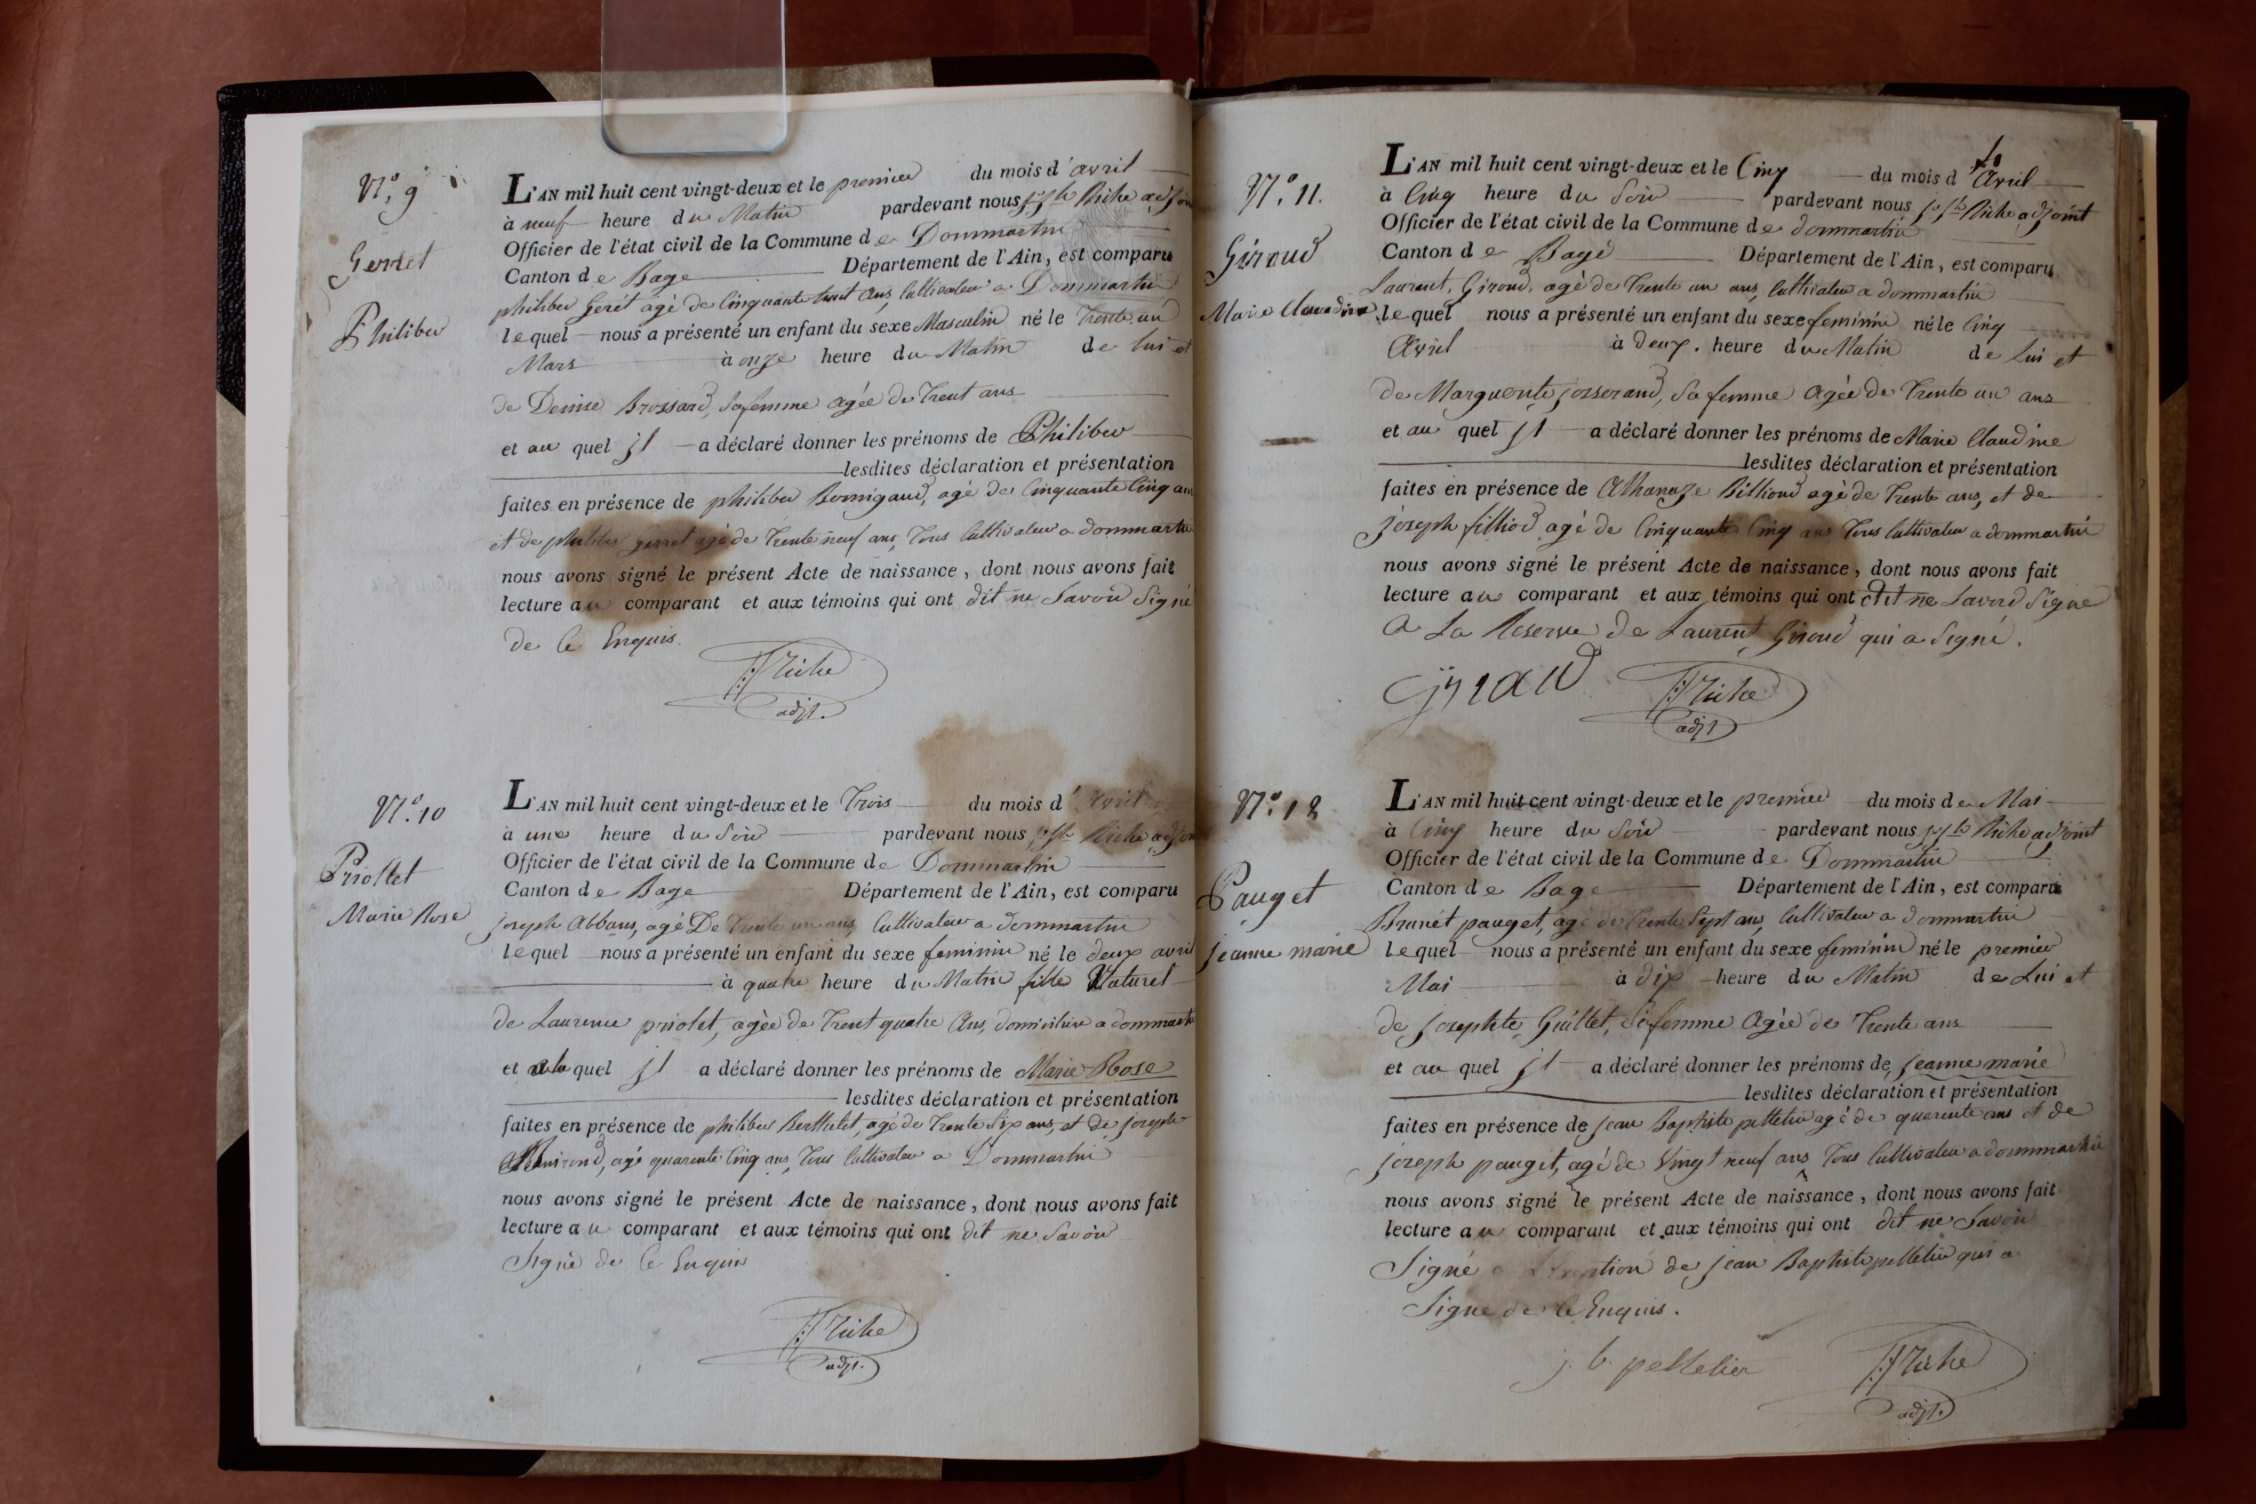 N.° 9
Gerret
Philiber
L'AN mil huit cent vingt-deux et le premier du mois d'avril
à neuf heure du Matin pardevant nous jsph Riche adjoin
Officier de l'état civil de la Commune de Dommartin
Canton de Bage Département de l'Ain, est comparu
philiber Geret agé de Cinquante huit ans, Cultivateur a Dommartin
lequel nous a présenté un enfant du sexe Masculin né le Trente un
Mars à onze heure du Matin de lui et
de Denise Brossard, sa femme agée de Trent ans
et au quel jl a déclaré donner les prénoms de Philiber
lesdites déclaration et présentation
faites en présence de philiber agé de Cinquante Cinq ans
et de philiber gerret agé de Trente neuf ans, Tous Cultivateur a dommartin
nous avons signé le présent Acte de naissance, dont nous avons fait
lecture au comparant et aux témoins qui ont dit ne Savoir Signé
de Ce Enquis.
Riche
adjt.
N.° 10
Priollet
Marie Rose
L'AN mil huit cent vingt-deux et le Trois du mois d'avril
à une heure du Soir pardevant nous jsph Riche adjoin
Officier de l'état civil de la Commune de Dommartin
Canton de Bage Département de l'Ain, est comparu
joseph agé De Trente un ans, Cultivateur a dommartin
lequel nous a présenté un enfant du sexe feminin né le deux avril
à quatre heure du Matin fille Naturel
de Laurence priolet, agée de Trent quatre Ans, a dommartin
et a la quel jl a déclaré donner les prénoms de Marie Rose
lesdites déclaration et présentation
faites en présence de philiber Berthelet, agé de Trente Six ans, et de joseph
agé quarente Cinq ans, Tous Cultivateur a Dommartin
nous avons signé le présent Acte de naissance, dont nous avons fait
lecture au comparant et aux témoins qui ont dit ne Savoir
Signé de Ce Enquis
Riche
adjt.
N.° 11.
Giroud
Marie Claudine
L'AN mil huit cent vingt-deux et le Cinq du mois d'Avril
à Cinq heure du Soir pardevant nous jsph Riche adjoint
Officier de l'état civil de la Commune de dommartin
Canton de Bagé Département de l'Ain, est comparu
Laurent, Giroud, agé de Trente un ans, Cultivateur a dommartin
lequel nous a présenté un enfant du sexe feminin né le Cinq
Avril à deux. heure du Matin de Lui et
de Marguerite josserand, Sa femme Agée de Trente un ans
et au quel jl a déclaré donner les prénoms de Marie Claudine
lesdites déclaration et présentation
faites en présence de Athanaze Billioud agé de Trente ans, et de
joseph filliod agé de Cinquante Cinq ans Tous Cultivateur a dommartin
nous avons signé le présent Acte de naissance, dont nous avons fait
lecture au comparant et aux témoins qui ont dit ne Savoir Signe
A La Reserve de Laurent Giroud qui a Signé.
Riche
adjt
N.° 12
Pauget
jeanne marie
L'AN mil huit cent vingt-deux et le premier du mois de Mai
à Cinq heure du Soir pardevant nous jsph Riche adjoint
Officier de l'état civil de la Commune de Dommartin
Canton de Bage Département de l'Ain, est comparu
Brunet pauget, agé de Trente Sept ans, Cultivateur a dommartin
lequel nous a présenté un enfant du sexe feminin né le premier
Mai à dix heure du Matin de Lui et
de josephte Guillet, Sa femme Agée de Trente ans
et au quel jl a déclaré donner les prénoms de jeanne marie
lesdites déclaration et présentation
faites en présence de jean Baptiste pelletier agé de quarente ans et de
joseph pauget, agé de Vingt neuf ans Tous Cultivateur a dommartin
nous avons signé le présent Acte de naissance, dont nous avons fait
lecture au comparant et aux témoins qui ont dit ne Savoir
Signé de jean Baptiste pelletier qui a
Signe de Ce Enquis.
j. b. pelletier
Riche
adjt.